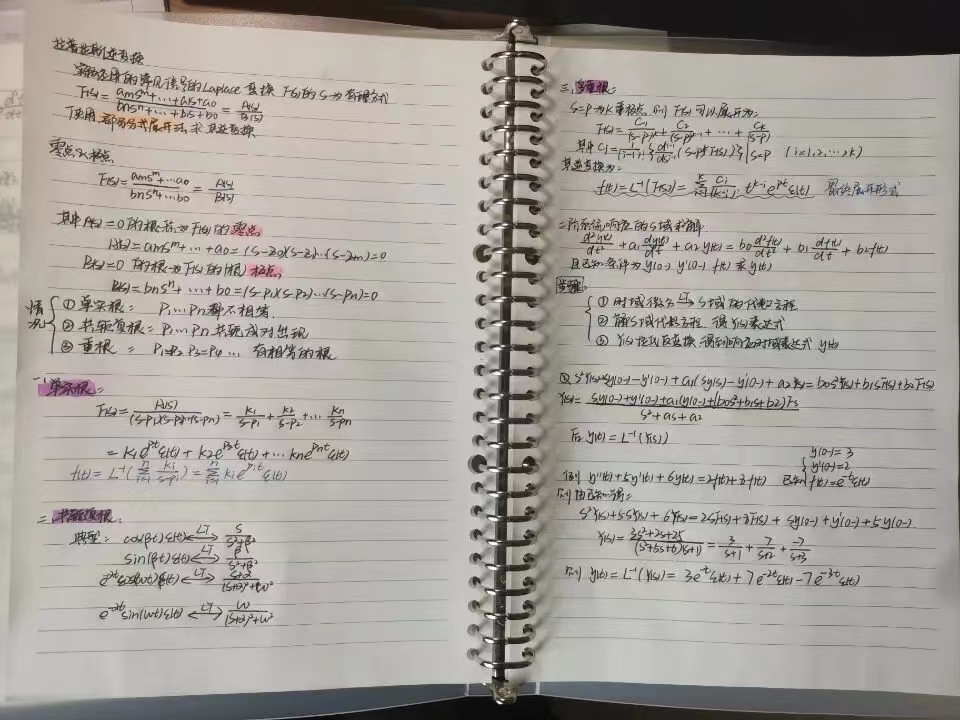 拉普拉斯逆变换
实际应用的常见信号的Laplace变换 F(s)的S为有理分式
F(s)=(amsⁿ+…+a1s+a0)/(bnsⁿ+…+b1s+b0)=A(s)/B(s)
使用部分分式展开法,求其逆变换
零点和极点
F(s)=(amsⁿ+…a0)/(bnsⁿ+…b0)=A(s)/B(s)
其中A(s)=0的根称为F(s)的零点
A(s)=amsⁿ+…+a0=(s-z0)(s-z1)…(s-zm)=0
B(s)=0 的根为F(s)的(根)极点
B(s)=bnsⁿ+…+b0=(s-p1)(s-p2)…(s-pn)=0
情况
① 单实根: P1…Pn都不相等
② 共轭复根: P1…Pn 共轭成对出现
③ 重根: P1=P2 P3=P4… 有相等的根
一.单实根:
F(s)=A(s)/((s-p1)(s-p2)…(s-pn))=k1/(s-p1)+k2/(s-p2)+…kn/(s-pn)
=k1e^{p1t}ε(t)+k2e^{p2t}ε(t)+…kne^{pnt}ε(t)
f(t)=L⁻¹(∑_{i=1}^{n} ki/(s-pi))=∑_{i=1}^{n} kie^{pit}ε(t)
二.共轭复根:
典型: cos(βt)ε(t) ⟷LT s/(s²+β²)
sin(βt)ε(t) ⟷LT β/(s²+β²)
⟷LT
e^{-αt}sin(ωt)ε(t) ⟷LT ω/((s+α)²+ω²)
三.多重根:
S=P为K重极点,则 F(s)可以展开为:
F(s)=C1/(s-p)^k+C2/(s-p)+…+Ck/(s-p)
(i=1,2,…,k)
其逆变换为:
f(t)=L⁻¹(F(s))=∑ Ci/(k-i)! t^{k-i}e^{pt}ε(t) 最终展开形式
二阶系统响应的S域求解
d²y(t)/dt²+a1dy(t)/dt+a2y(t)=b0d²f(t)/dt²+b1df(t)/dt+b2f(t)
且已知条件为y(0-) y'(0-) f(t) 求y(t)
步骤:
① 时域微分 LT→ S域的代数方程
② 解S域代数方程 得Y(s)表达式
③ Y(s)拉氏反变换 得到响应时域表达式 y(t)
② s²Y(s)-sy(0-)-y'(0-)+a1(sy(s)-y'(0-)+a2Y(s)=b0s²F(s)+b1sF(s)+b2F(s)
Y(s)=(sy(0-)+y'(0-)+a1(y(0-)+(b0s²+b1s+b2)Fs)/(s²+as+a2)
后y(t)=L⁻¹(Y(s))
例 y''(t)+5y'(t)+6y(t)=2f'(t)+8f(t) 已知 {y(0-)=3 y'(0-)=2 f(t)=e^{-t}ε(t)
则由已知得:
s²Y(s)+5SY(s)+6Y(s)=2SF(s)+8F(s)+sy(0-)+y'(0-)+5y(0-)
Y(s)=(3s²+22s+25)/((s²+5s+6)(s+1))=3/(s+1)+7/(s+2)-7/(s+3)
则 y(t)=L⁻¹(Y(s)=3e^{-t}ε(t)+7e^{-2t}ε(t)-7e^{-3t}ε(t)